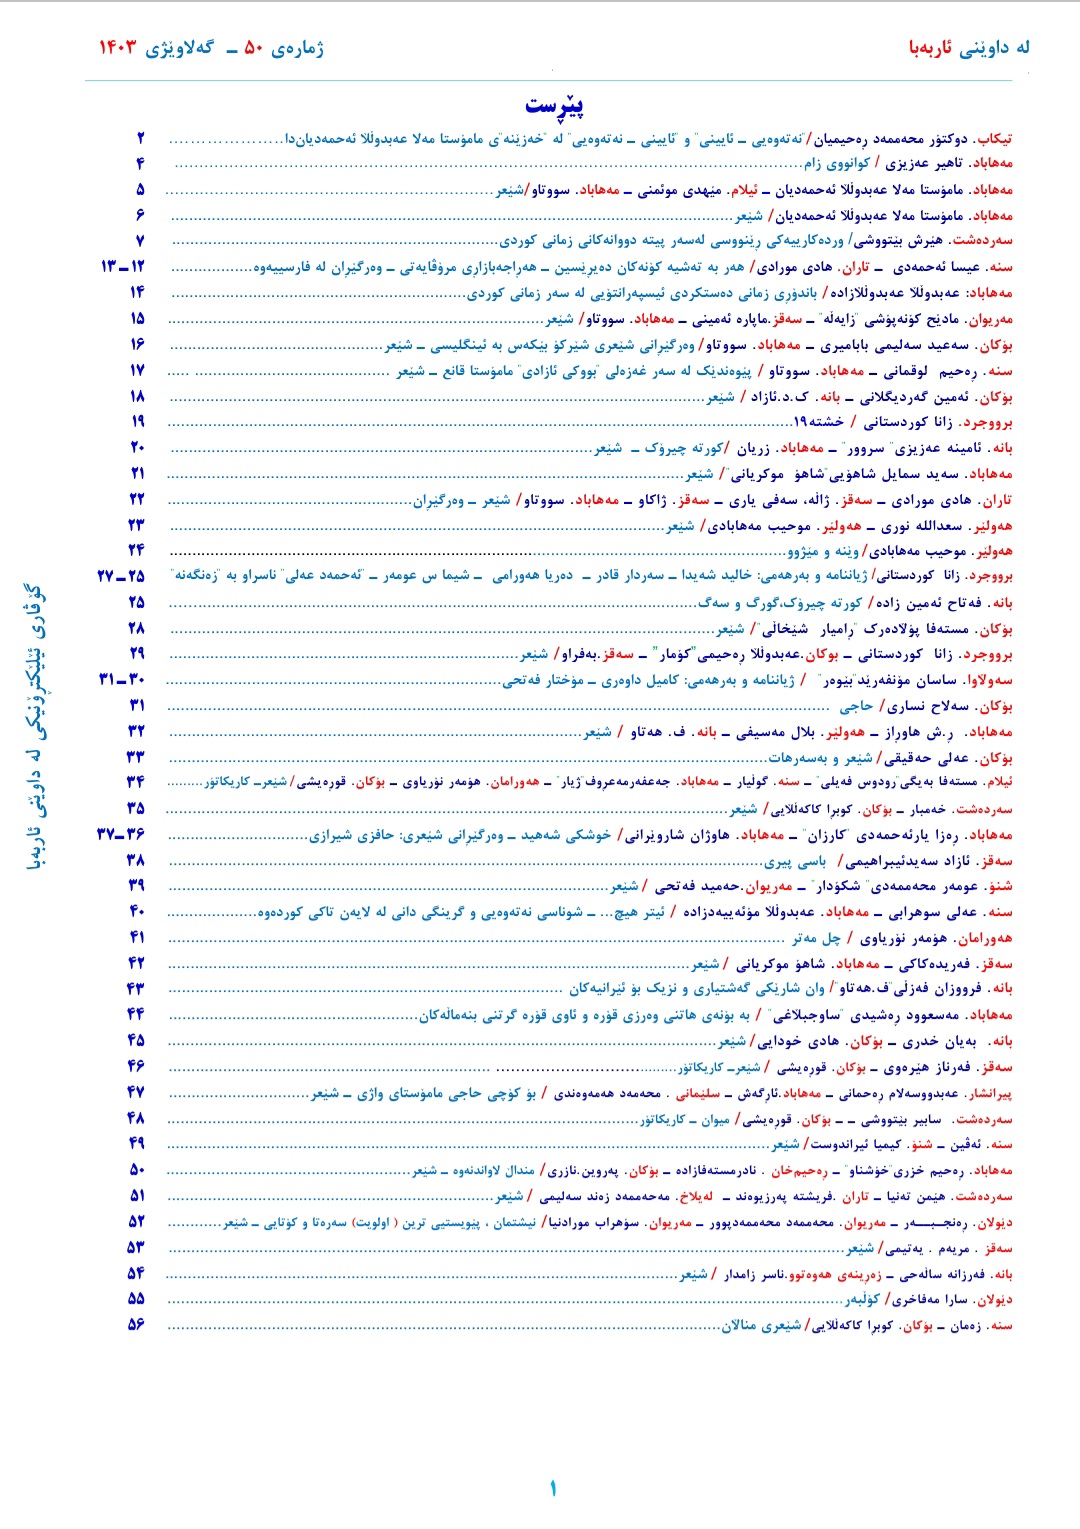 لە داوێنی ئاربەبا
ژمارەی ۵۰ ــ گەلاوێژی ۱۴۰۳
پێڕست
تیکاب. دوکتۆر محەممەد ڕەحیمیان/"نەتەوەیی ــ ئایینی" و "ئایینی ــ نەتەوەیی" لە "خەزێنە"ی مامۆستا مەلا عەبدوڵلا ئەحمەدیان‌دا..................... ۲
مەهاباد. تاهیر عەزیزی / کوانووی زام..................... ۴
مەهاباد. مامۆستا مەلا عەبدوڵلا ئەحمەدیان ــ ئیلام. مێهدی موئمنی ــ مەهاباد. سووتاو/شێعر..................... ۵
مەهاباد. مامۆستا مەلا عەبدوڵلا ئەحمەدیان/ شێعر..................... ۶
سەردەشت. هێرش بێتووشی/ وردەکارییەکی ڕێنووسی لەسەر پیتە دووانەکانی زمانی کوردی..................... ۷
سنە. عیسا ئەحمەدی ــ تاران. هادی مورادی/ هەر بە تەشیە کۆنەکان دەیڕێسین ــ هەڕاجەبازاڕی مرۆڤایەتی ــ وەرگێڕان لە فارسییەوە..................... ۱۲ــ۱۳
مەهاباد: عەبدوڵلا عەبدوڵلازادە/ باندۆڕی زمانی دەستکردی ئیسپەرانتۆیی لە سەر زمانی کوردی..................... ۱۴
مەریوان. مادێح کۆنەپۆشی "زایەڵە" ــ سەقز.ماپارە ئەمینی ــ مەهاباد. سووتاو/ شێعر..................... ۱۵
بۆکان. سەعید سەلیمی بابامیری ــ مەهاباد. سووتاو/ وەرگێڕانی شێعری شێرکۆ بێکەس بە ئینگلیسی ــ شێعر..................... ۱۶
سنە. ڕەحیم لوقمانی ــ مەهاباد. سووتاو / پێوەندێک لە سەر غەزەلی "بووکی ئازادی" مامۆستا قانع ــ شێعر ..................... ۱۷
بۆکان. ئەمین گەردیگلانی ــ بانە. ک.د.ئازاد / شێعر..................... ۱۸
برووجرد. زانا کوردستانی / خشتە۱۹..................... ۱۹
بانە. ئامینە عەزیزی" سروور" ــ مەهاباد. زریان /کورتە چیرۆک ــ شێعر..................... ۲۰
مەهاباد. سەید سمایل شاهۆیی"شاهۆ موکریانی"/ شێعر..................... ۲۱
تاران. هادی مورادی ــ سەقز. ژاڵە، سەفی یاری ــ سەقز. ژاکاو ــ مەهاباد. سووتاو/ شێعر ــ وەرگێڕان..................... ۲۲
هەولێر. سعداللە نوری ــ هەولێر. موحیب مەهابادی/ شێعر..................... ۲۳
هەولێر. موحیب مەهابادی/ وێنە و مێژوو..................... ۲۴
برووجرد. زانا کوردستانی/ ژیاننامە و بەرهەمی: خالید شەیدا ــ سەردار قادر ــ دەریا هەورامی ــ شیما س عومەر ــ "ئەحمەد عەلی" ناسراو بە "زەنگەنە" ۲۵ــ۲۷
بانە. فەتاح ئەمین زادە/ کورتە چیرۆک،گورگ و سەگ..................... ۲۵
بۆکان. مستەفا پۆلادەرک "ڕامیار شێخاڵی"/ شێعر..................... ۲۸
برووجرد. زانا کوردستانی ــ بوکان.عەبدوڵلا ڕەحیمی"کۆمار" ــ سەقز.بەفراو/ شێعر..................... ۲۹
سەولاوا. ساسان مۆنفەرێد"بێوەر" / ژیاننامە و بەرهەمی: کامیل داوەری ــ مۆختار فەتحی..................... ۳۰ــ۳۱
بۆکان. سەلاح نساری/ حاجی ..................... ۳۱
مەهاباد. ڕ.ش هاوڕاز ــ هەولێر. بلال مەسیفی ــ بانە. ف. هەتاو / شێعر..................... ۳۲
بۆکان. عەلی حەقیقی/ شێعر و بەسەرهات..................... ۳۳
ئیلام. مستەفا بەیگی"رودوس فەیلی" ــ سنە. گوڵیار ــ مەهاباد. جەعفەرمەعروف"ژیار" ــ هەورامان. هۆمەر نۆریاوی ــ بۆکان. قوڕەیشی/ شێعرــ کاریکاتۆر......... ۳۴
سەردەشت. خەمبار ــ بۆکان. کوبرا کاکەڵلایی/ شێعر..................... ۳۵
مەهاباد. ڕەزا یارئەحمەدی "کارزان" ــ مەهاباد. هاوژان شاروێرانی/ خوشکی شەهید ــ وەرگێڕانی شێعری: حافزی شیرازی..................... ۳۶ــ۳۷
سەقز. ئازاد سەیدئیبراهیمی/ باسی پیری..................... ۳۸
شنۆ. عومەر محەممەدی" شکۆدار" ــ مەریوان.حەمید فەتحی / شێعر..................... ۳۹
سنە. عەلی سوهرابی ــ مەهاباد. عەبدوڵلا مۆئەییەدزادە / ئیتر هیچ... ــ شوناسی نەتەوەیی و گرینگی دانی لە لایەن تاکی کوردەوە..................... ۴۰
هەورامان. هۆمەر نۆریاوی / چل مەتر ..................... ۴۱
سەقز. فەریدەکاکی ــ مەهاباد. شاهۆ موکریانی / شێعر..................... ۴۲
بانە. فرووزان فەزڵی"ف.هەتاو"/ وان شارێکی گەشتیاری و نزیک بۆ ئێرانیەکان ..................... ۴۳
مەهاباد. مەسعوود ڕەشیدی "ساوجبلاغی" / بە بۆنەی هاتنی وەرزی قۆرە و ئاوی قۆرە گرتنی بنەماڵەکان..................... ۴۴
بانە. بەیان خدری ــ بۆکان. هادی خودایی/ شێعر..................... ۴۵
سەقز. فەرناز هێرەوی ــ بۆکان. قوڕەیشی / شێعرــ کاریکاتۆر..................... ۴۶
پیرانشار. عەبدووسەلام ڕەحمانی ــ مەهاباد.ئارگەش ــ سلێمانی . محەمەد هەمەوەندی / بۆ کۆچی حاجی مامۆستای واژی ــ شێعر..................... ۴۷
سەردەشت. سابیر بێتووشی ــ ــ بۆکان. قوڕەیشی/ میوان ــ کاریکاتۆر..................... ۴۸
سنە. ئەڤین ــ شنۆ. کیمیا ئیراندوست/ شێعر..................... ۴۹
مەهاباد. ڕەحیم خزری"خۆشناو" ــ ڕەحیم‌خان . نادرمستەفازادە ــ بۆکان. پەروین.نازری/ منداڵ لاواندنەوە ــ شێعر..................... ۵۰
سەردەشت. هێمن تەنیا ــ تاران .فریشتە پەرزیوەند ــ لەیلاخ. مەحەممەد زەند سەلیمی / شێعر..................... ۵۱
دێولان. ڕەنجـبـــەر ــ مەریوان. محەممەد محەممەدپوور ــ مەریوان. سۆهراب مورادنیا/ نیشتمان ، پێویستیی ترین ( اولویت) سەرەتا و کۆتایی ــ شێعر............ ۵۲
سەقز . مریەم . یەتیمی/ شێعر..................... ۵۳
بانە. فەرزانە ساڵەحی ــ زەڕینەی هەوەتوو.ناسر زامدار / شێعر..................... ۵۴
دێولان. سارا مەفاخری/ کۆڵبەر..................... ۵۵
سنە. زەمان ــ بۆکان. کوبرا کاکەڵلایی/ شێعری مناڵان..................... ۵۶
گۆڤاری ئێلێکترۆنیکی لە داوێنی ئاربەبا
۱